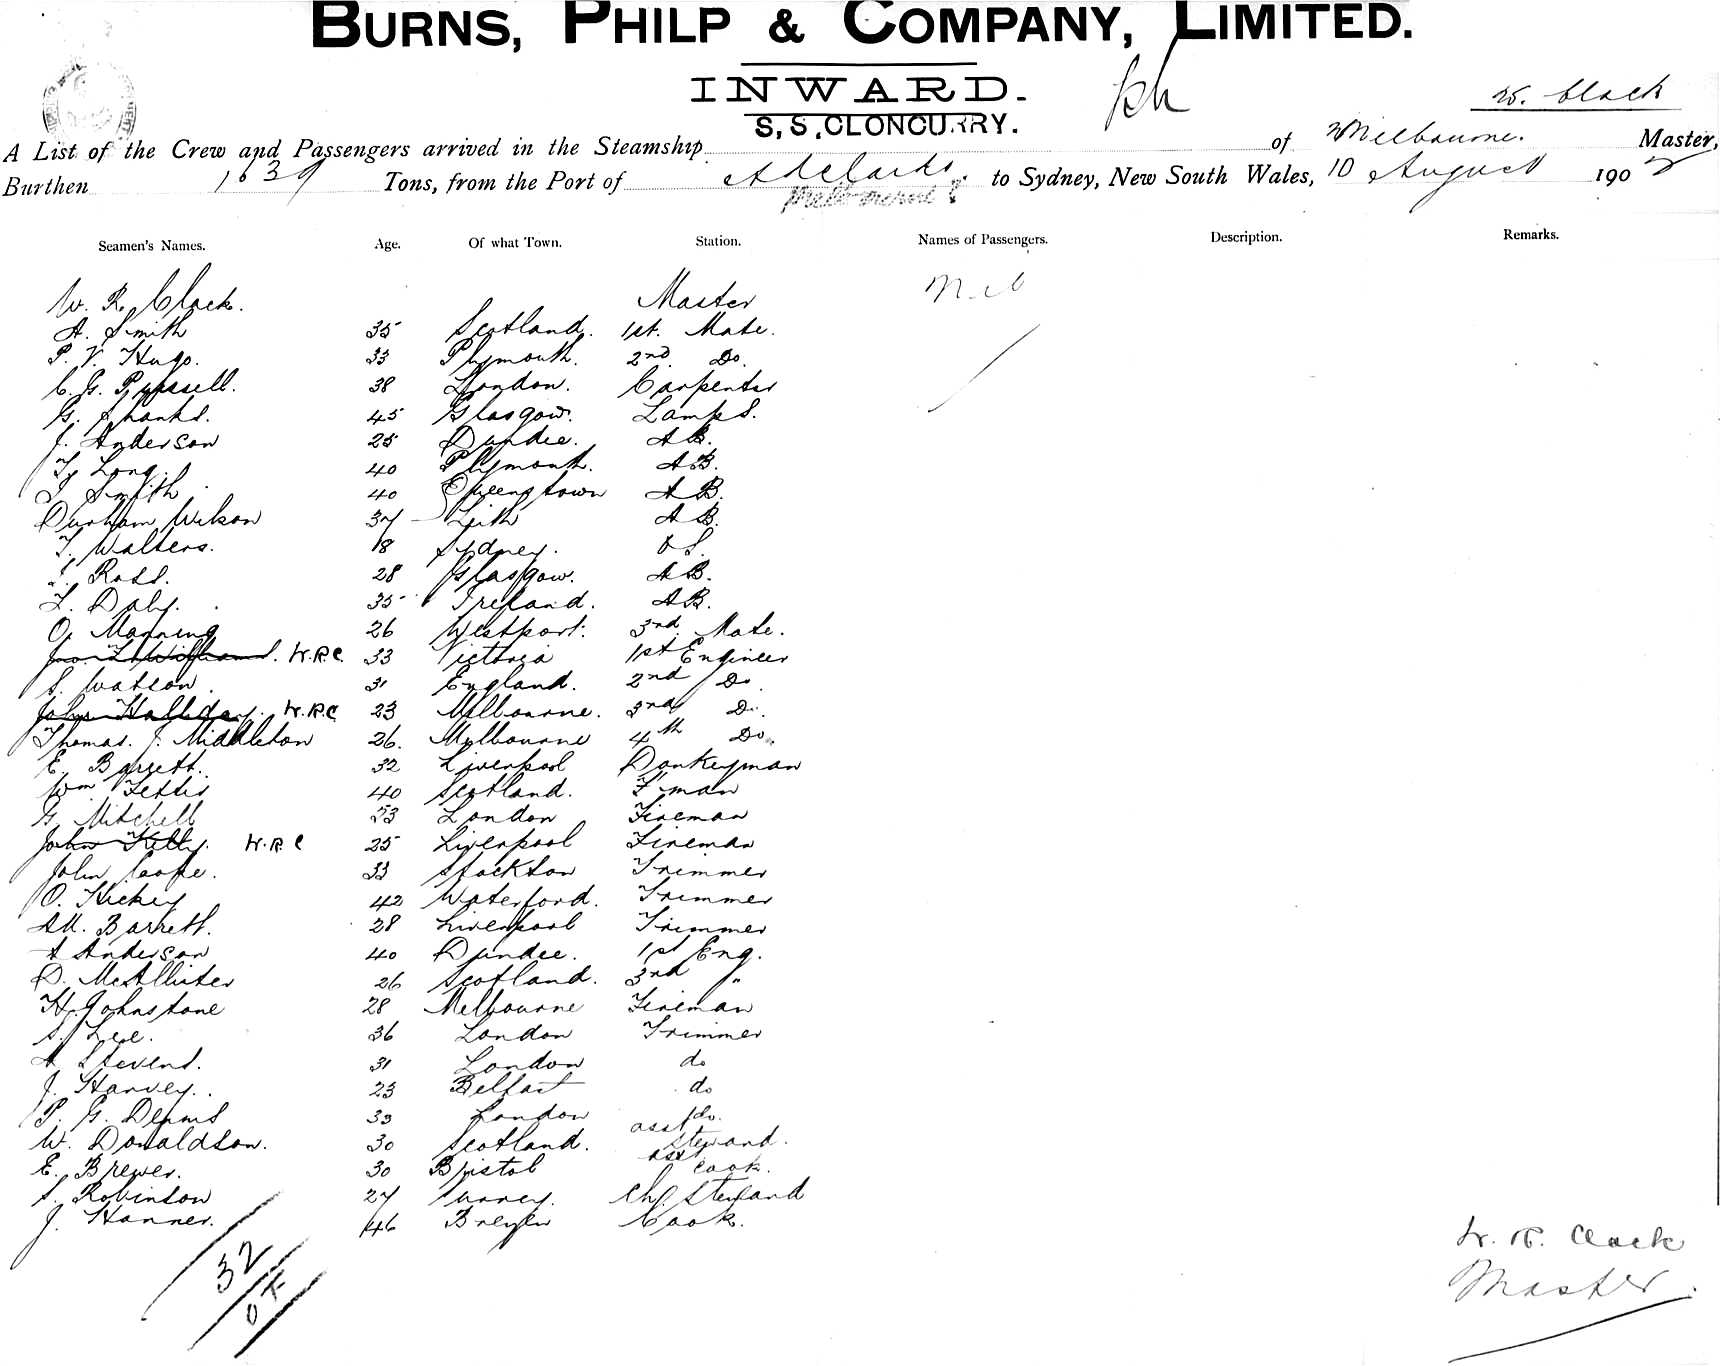 BURNS, PHILP & COMPANY, LIMITED.
INWARD.
W. Clack
S.S. CLONCURRY.
A List of the Crew and Passengers arrived in the Steamship of Melbourne. Master,
Burthen 1639 Tons, from the Port of Adelaide. to Sydney, New South Wales, 10 August 1902
Melbourne
Seamen's Names. Age. Of what Town. Station. Names of Passengers. Description. Remarks.
W. R. Clack. Master Nil
A. Smith 35 Scotland. 1st. Mate.
P. V. Hugo. 33 Plymouth. 2nd. Do.
C. G. Russell. 38 London. Carpenter
G. Shanks. 45 Glasgow. Lamps.
J. Anderson 25 Dundee. AB.
Ty Long. 40 Plymouth. AB.
J. Smith 40 Queenstown AB.
Durham Wilson 37 Leith AB.
T. Walters. 18 Sydney. OS.
Ross. 28 Glasgow. AB.
Daly. 35 Ireland. AB.
O. Manning 26 Westport. 3rd. Mate.
Williams. W.R.C. 33 Victoria 1st Engineer
S. Watson. 31 England. 2nd Do
John Halliday. W.R.C 23 Melbourne. 3rd Do.
Thomas. J. Middleton 26. Melbourne 4th Do.
E. Bargett. 32 Liverpool Donkeyman
Wm Fettis 40 Scotland. F'man
G. Mitchell 53 London Fireman
John Kelly. W.R.C 25 Liverpool Fireman
John Cooke. 33 Stockton Trimmer
O. Hickey 42 Waterford. Trimmer
M. Barrett. 28 Liverpool Trimmer
A Anderson 40 Dundee. 1st Eng.
D. McAllister 26 Scotland. 3rd "
H. Johnstone 28 Melbourne Fireman
S. Lee. 36 London Trimmer
A Stevens. 31 London do
J. Harvey. 23 Belfast do
P. G. Dennis 33 London do.
W. Donaldson. 30 Scotland. asst Steward.
E. Brewer. 30 Bristol asst Cook.
S. Robinson 27 Surrey. Chf Steward
J. Hanner. 46 Cook.
32
OK
W. R. Clack
Master.